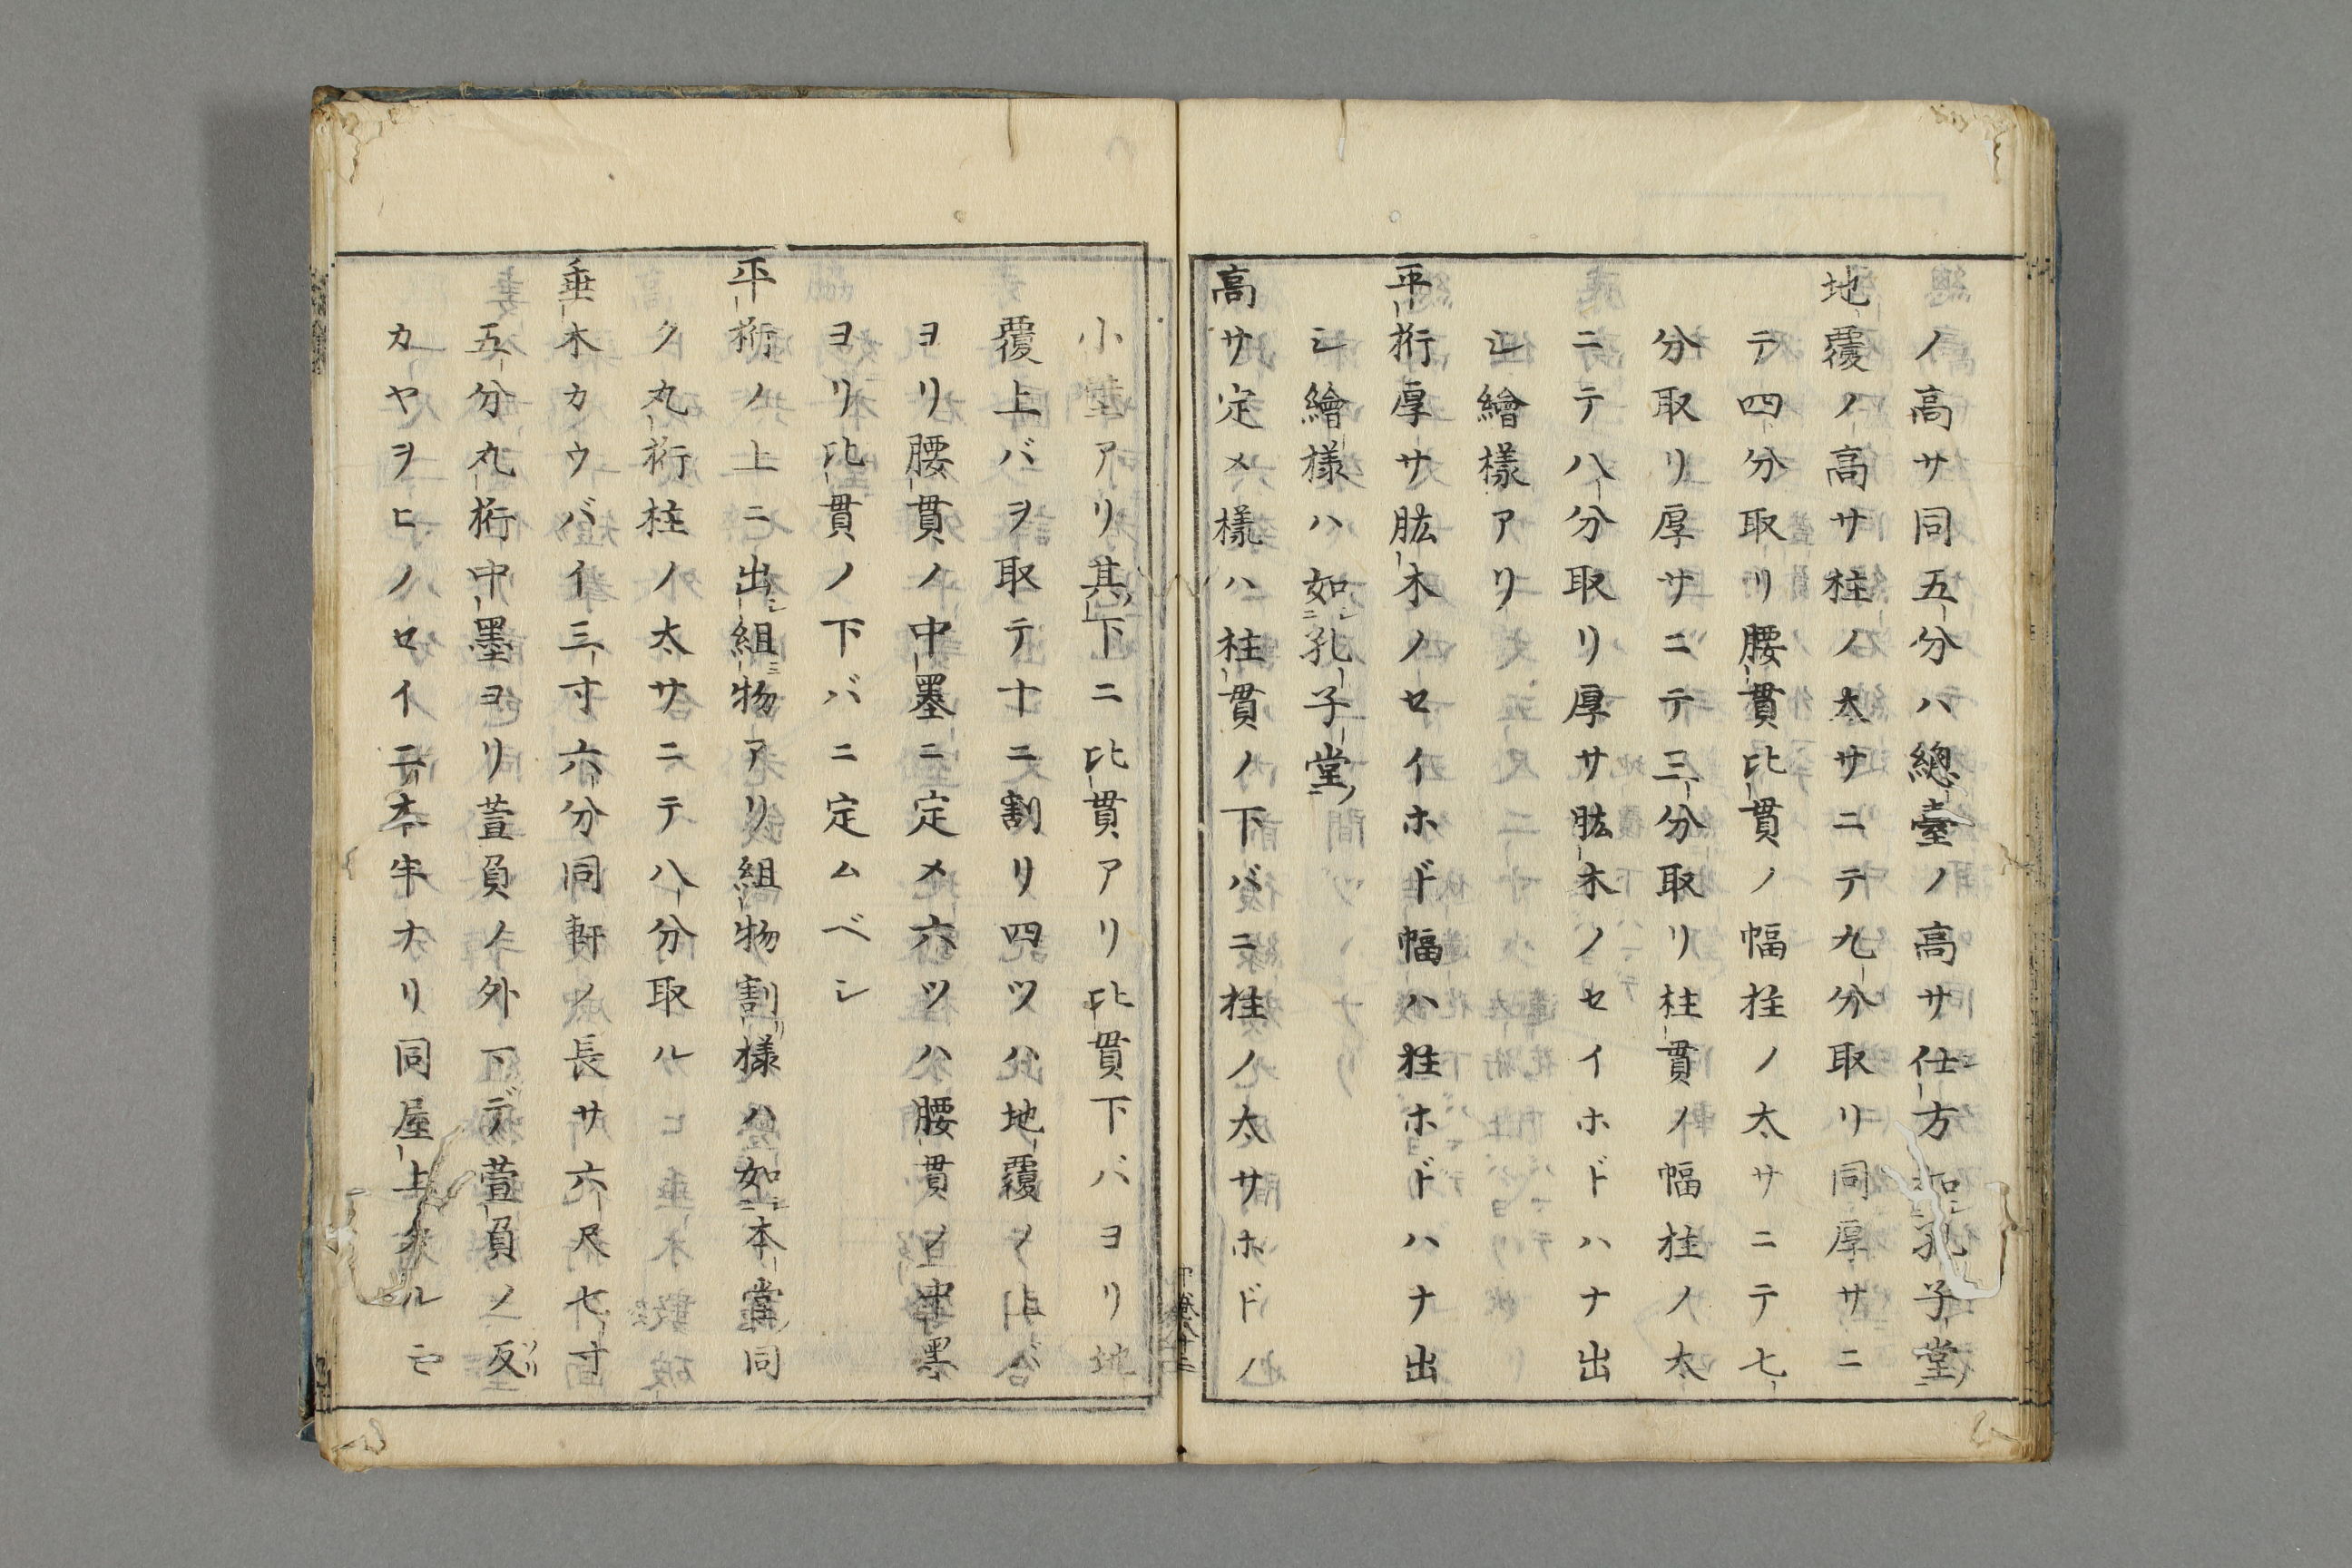 ノ高サ同五分ハ總臺ノ高サ仕方如孔子堂
地覆ノ高サ柱ノ太サニテ九分取リ同厚サニ
テ四分取リ腰貫比貫ノ幅柱ノ太サニテ七
分取リ厚サニテ三分取リ柱貫ノ幅柱ノ太
ニテ八分取リ厚サ肱木ノセイホドハナ出
シ繪樣アリ
平桁厚サ肱木ノセイホド幅ハ柱ホドハナ出
シ繪樣ハ如孔子堂
高サ定メ樣ハ柱貫ノ下バニ柱ノ太サホドノ
小壁アリ其下ニ比貫アリ比貫下バヨリ地
覆上バヲ取テ十ニ割リ四ツハ地覆ノ上バ
ヨリ腰貫ノ中墨ニ定メ六ツハ腰貫ノ中墨
ヨリ比貫ノ下バニ定ムベシ
平桁ノ上ニ出シ組ミ物アリ組物割リ樣ハ如本堂同
ク丸桁柱ノ太サニテハ分取ル
垂木カウバイ三寸六分同軒ノ長サ六尺七寸
五分丸桁中墨ヨリ萱負ノ外下デ萱負ノ反ソリ
カヤヲヒノセイニ本半ナリ同屋上ルモ